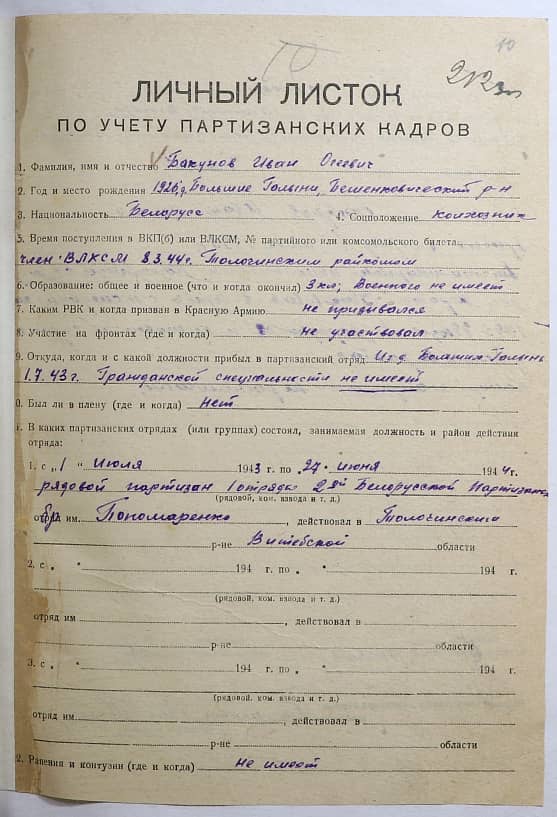 10
212
ЛИЧНЫЙ ЛИСТОК
ПО УЧЕТУ ПАРТИЗАНСКИХ КАДРОВ
1. Фамилия, имя и отчество Бакунов Иван Осеевич
2. Год и место рождения 1926 г. Большие Голыни, Бешенковический р-н
3. Национальность Белорусс 4. Соцположение колхозник
5. Время поступления в ВКП(б) или ВЛКСМ, № партийного или комсомольского билета
член ВЛКСМ 8.3.44 г. Толочинским райкомом
6. Образование: общее и военное (что и когда окончил) 3 кл; Военного не имеет
7. Каким РВК и когда призван в Красную Армию не призывался
8. Участие на фронтах (где и когда) не участвовал
9. Откуда, когда и с какой должности прибыл в партизанский отряд Из д. Большие-Голынь
1.7.43 г. Гражданской специальности не имеет
0. Был ли в плену (где и когда) Нет
1. В каких партизанских отрядах (или группах) состоял, занимаемая должность и район действия
отряда:
1. с „1 “ Июля 1943 г. по „27“ июня 1944 г.
рядовой партизан 1 отряда 2ой Белорусской Партизанск
(рядовой, ком. взвода и т. д.)
бр. отряд им. Пономаренко, действовал в Толочинском
р-не Витебской области
2. с „ “ 194 г. по „ “ 194 г.
(рядовой, ком. взвода и т. д.)
отряд им , действовал в
р-не области
3. с „ “ 194 г. по „ “ 194 г.
(рядовой, ком. взвода и т. д.)
отряд им , действовал в
р-не области
2. Ранения и контузии (где и когда) не имеет